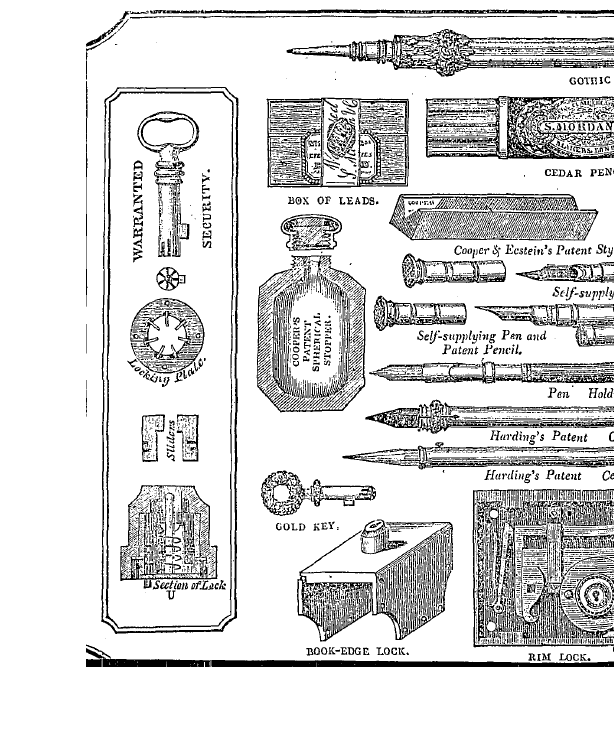 GOTHIC
WARRANTED
SECURITY.
S. MORDAN
BOX OF LEADS.
CEDAR PENC
Cooper & Ecstein's Patent Sty
Self-supply
COOPER'S
PATENT
SPHERICAL
STOPPER.
Self-supplying Pen and
Patent Pencil.
Locking Plate.
Pen Hold
Sliders
Harding's Patent C
Harding's Patent Ce
GOLD KEY.
Section of Lock
BOOK-EDGE LOCK.
RIM LOCK.